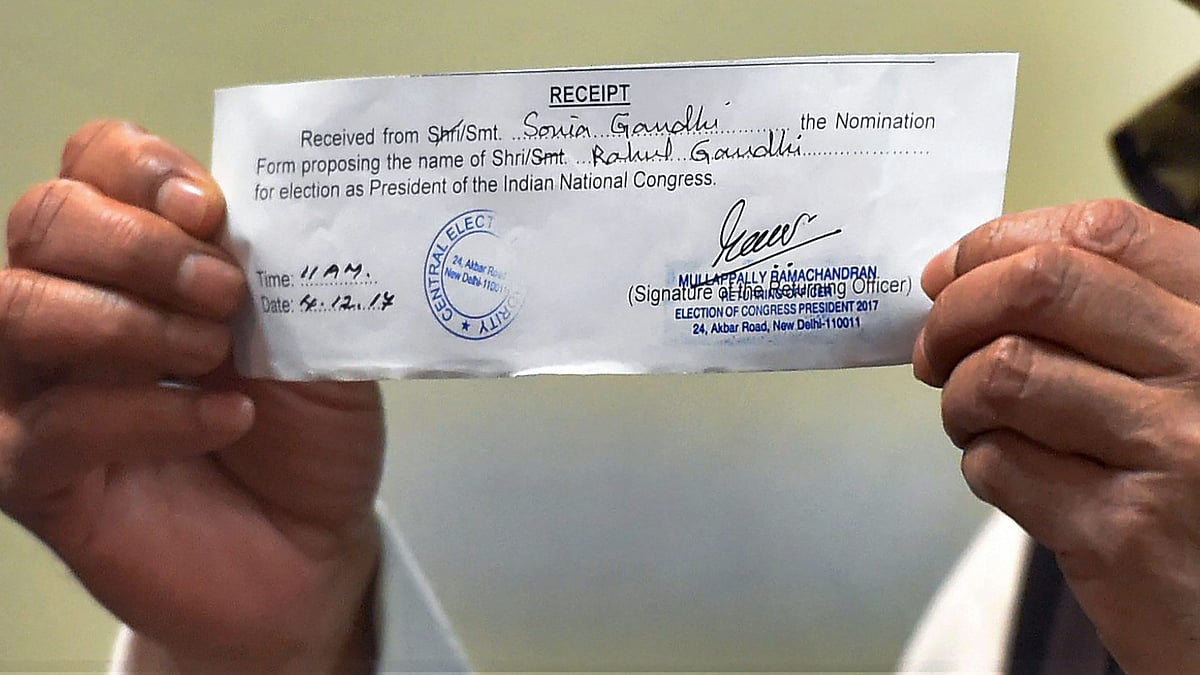 RECEIPT
Received from Shri/Smt. ..Sonia Gandhi.............. the Nomination
Form proposing the name of Shri/Smt. ...Rahul Gandhi......................
for election as President of the Indian National Congress.
CENTRAL ELECT ORITY
24, Akbar Road
New Delhi-110011
Time: 11 AM.
Date: 4.12.17
MULLAPPALLY RAMACHANDRAN
(Signature of the Returning Officer)
RETURNING OFFICER
ELECTION OF CONGRESS PRESIDENT 2017
24, Akbar Road, New Delhi-110011